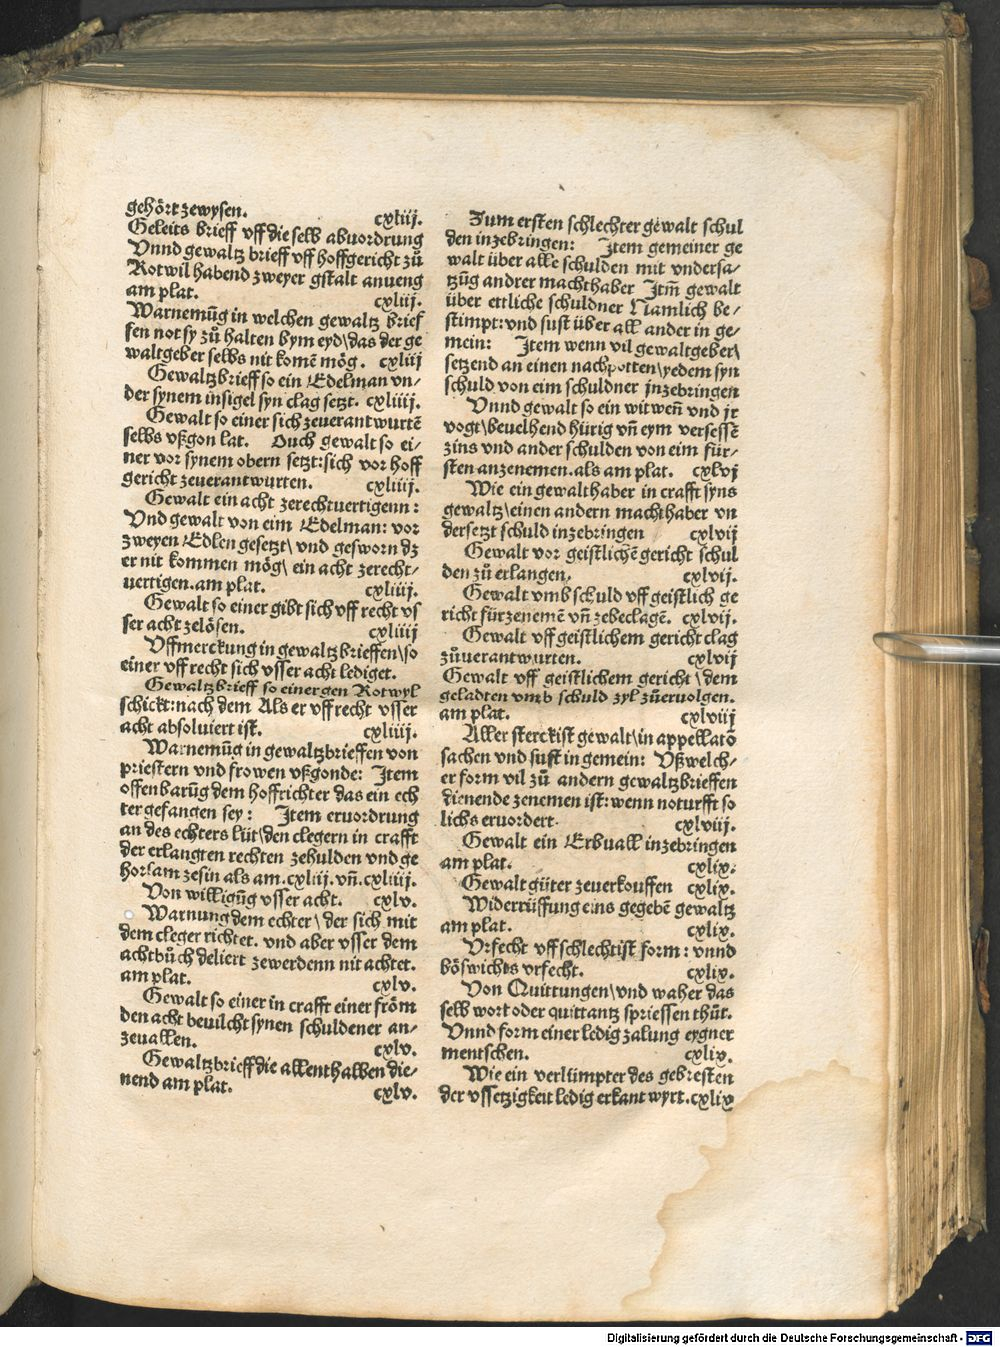 gehört zewysen. cxliij.
Geleits brieff vff die selb abuordrung
Vnnd gewaltz brieff vff hoffgericht zů
Rotwil habend zweyer gstalt anueng
am plat. cxliij.
Warnemūg in welchen gewaltz brief
fen not sy zů halten bym eyd/das der ge
waltgeber selbs nit komē mög. cxliij
Gewaltzbrieff so ein Edelman vn-
der synem insigel syn clag setzt. cxliiij.
Gewalt so einer sich zeuerantwurtē
selbs vßgon lat. Ouch gewalt so ei-
ner vor synem obern setzt:sich vor hoff
gericht zeuerantwurten. cxliiij.
Gewalt ein acht zerechtuertigenn:
Vnd gewalt von eim Edelman: vor
zweyen Edlen gesetzt/ vnd gesworn dz
er nit kommen mög/ ein acht zerecht-
uertigen.am plat. cxliiij.
Gewalt so einer gibt sich vff recht vs
ser acht zelösen. cxliiij
Vffmerckung in gewaltzbrieffen/so
einer vff recht sich vsser acht lediget.
Gewaltzbrieff so einer gen Rotwyl
schickt:nach dem Als er vff recht vsser
acht absoluiert ist. cxliiij.
Warnemūg in gewaltzbrieffen von
priestern vnd frowen vßgonde: Item
offenbarūg dem hoffrichter das ein ech
ter gefangen sey: Item eruordrung
an des echters lüt/den clegern in crafft
der erlangten rechten zehulden vnd ge
horsam zesin als am.cxliij.vn̄.cxliiij.
Von willigūg vsser acht. cxlv.
Warnung dem echter/ der sich mit
dem cleger richtet. vnd aber vsser dem
achtbůch deliert zewerdenn nit achtet.
am plat. cxlv.
Gewalt so einer in crafft einer fröm
den acht beuilcht synen schuldener an-
zeuallen. cxlv.
Gewaltzbrieff die allenthalben die-
nend am plat. cxlv.
Zum ersten schlechter gewalt schul
den inzebringen: Item gemeiner ge
walt über alle schulden mit vndersa-
tzūg andrer machthaber Itm̄ gewalt
über ettliche schuldner Namlich be-
stimpt:vnd sust über all ander in ge-
mein: Item wenn vil gewaltgeber/
setzend an einen nachpotten/yedem syn
schuld von eim schuldner jnzebringen
Vnnd gewalt so ein witwen̄ vnd jr
vogt/beuelhend hürig vn̄ eym versessē
zins vnd ander schulden von eim für-
sten anzenemen.als am plat. cxlvj
Wie ein gewalthaber in crafft syns
gewaltz/einen andern machthaber vn
dersetzt schuld inzebringen cxlvij
Gewalt vor geistlichē gericht schul
den zů erlangen. cxlvij.
Gewalt vmb schuld vff geistlich ge
richt fürzenemē vn̄ zebeclagē. cxlvij.
Gewalt vff geistlichem gericht clag
zůuerantwurten. cxlvij
Gewalt vff geistlichem gericht/dem
geladten vmb schuld zyl zůeruolgen.
am plat. cxlviij
Aller sterckist gewalt/in appellatō
sachen vnd sust in gemein: Vß welch-
er form vil zů andern gewaltzbrieffen
dienende zenemen ist:wenn noturfft so
lichs eruordert. cxlviij.
Gewalt ein Erbuall inzebringen
am plat. cxlix.
Gewalt güter zeuerkouffen cxlix.
Widerrüffung eins gegebē gewaltz
am plat. cxlix.
Vrfecht vff schlechtist form: vnnd
böswichts vrfecht. cxlix.
Von Quittungen/vnd waher das
selb wort oder quittantz spriessen thůt.
Vnnd form einer ledig zalung eygner
mentschen. cxlix.
Wie ein verlümpter des gebresten
der vssetzigkeit ledig erkant wyrt.cxlix
Digitalisierung gefördert durch die Deutsche Forschungsgemeinschaft - DFG